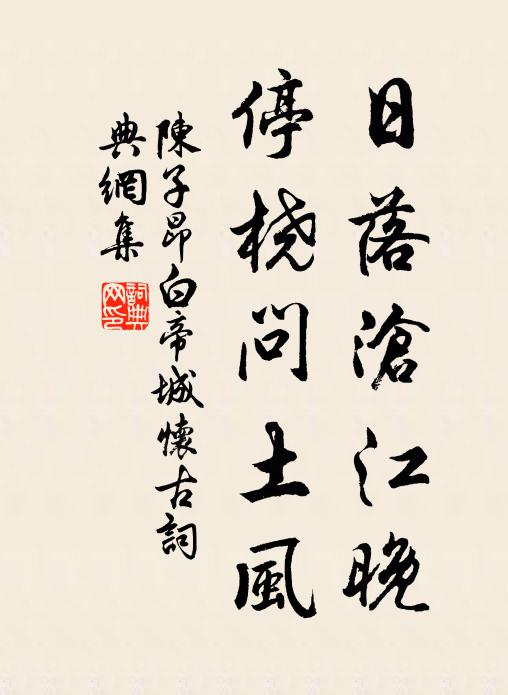 日落滄江晚
停橈問土風
陳子昂白帝城懷古詞
典網集
詞典網印